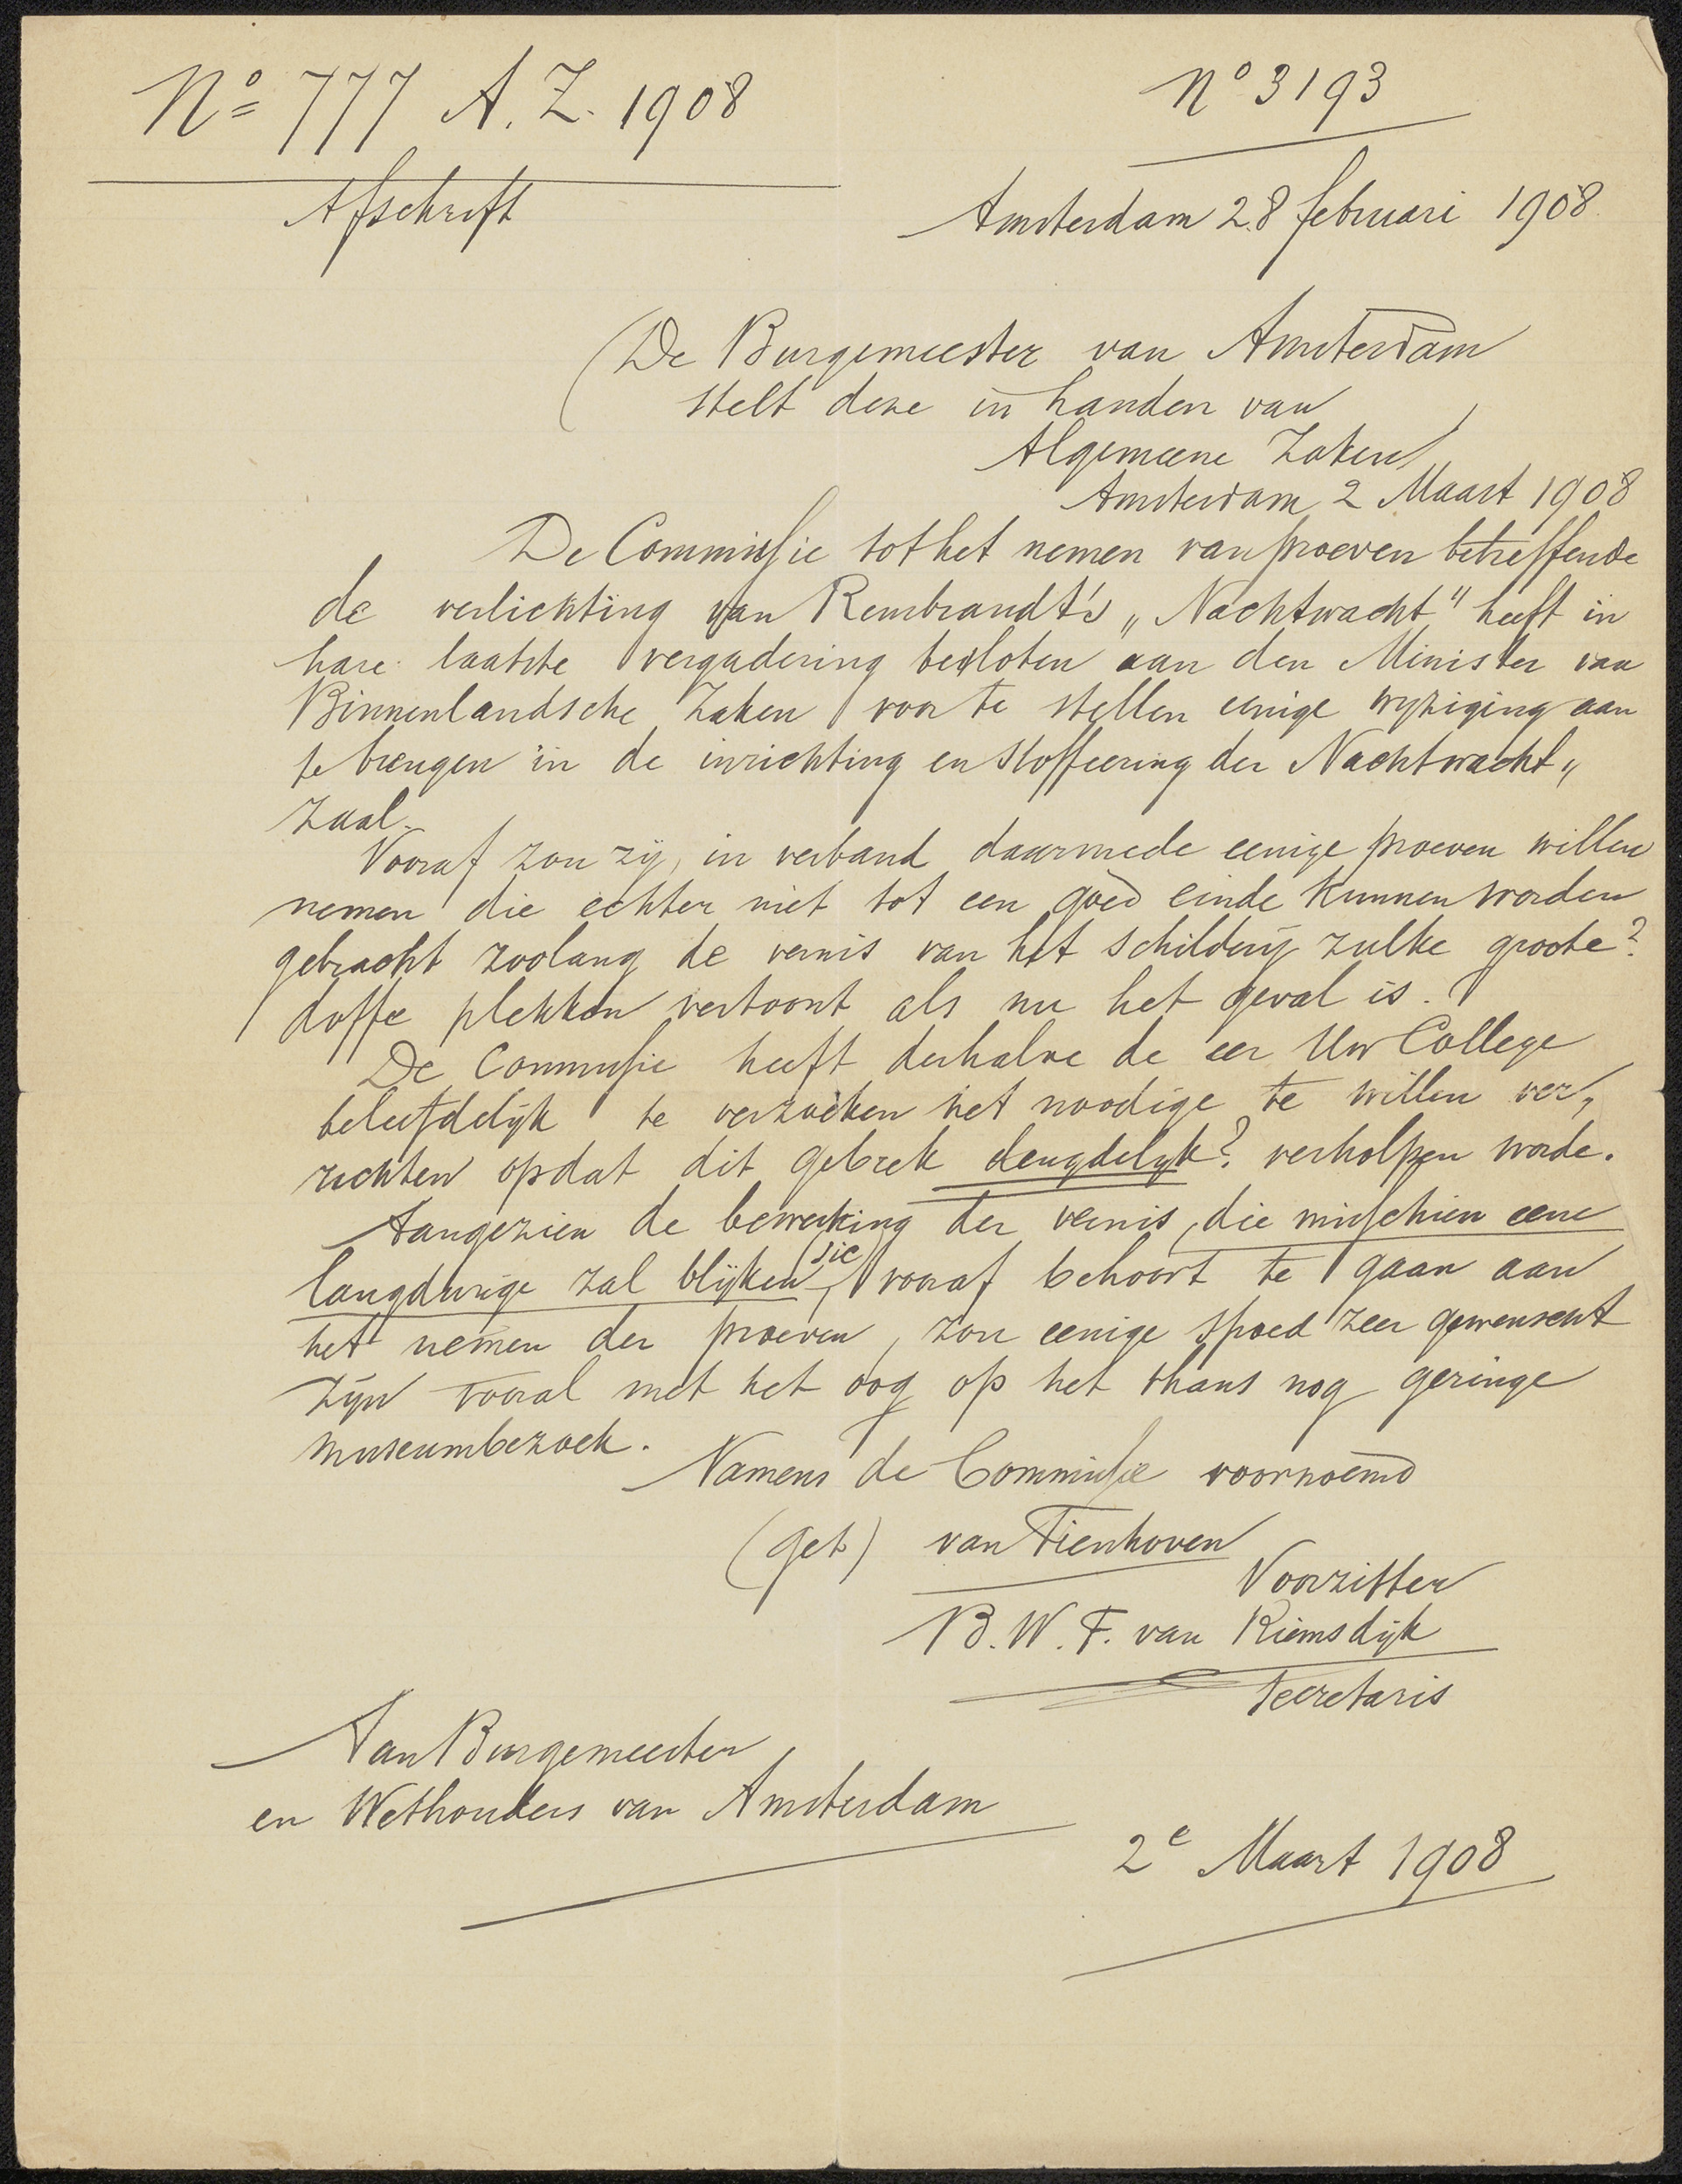 No 777 A. Z. 1908
No 3193
Afschrift
Amsterdam 28 februari 1908.
(De Burgemeester van Amsterdam
stelt deze in handen van
Algemeene Zaken)
Amsterdam 2 Maart 1908
De Commissie tot het nemen van proeven betreffende
de verlichting van Rembrandt's „Nachtwacht" heeft in
hare laatste vergadering besloten aan den Minister van
Binnenlandsche Zaken voor te stellen eenige wijziging aan
te brengen in de inrichting en stoffeering der Nachtwacht„
zaal.
Vooraf zou zij, in verband daarmede eenige proeven willen
nemen die echter niet tot een goed einde kunnen worden
gebracht zoolang de vernis van het schilderij zulke groote?
doffe plekken vertoont als nu het geval is.
De Commissie heeft derhalve de eer Uw College
beleefdelijk te verzoeken het noodige te willen ver„
richten opdat dit gebrek deugdelijk? verholpen worde.
Aangezien de bewerking der vernis, die misschien eene
langdurige zal blijken (sic), vooraf behoort te gaan aan
het nemen der proeven, zou eenige spoed zeer gewenscht
zijn vooral met het oog op het thans nog geringe
museumbezoek.
Namens de Commissie voornoemd
(get) van Tienhoven
Voorzitter
B. W. F. van Riemsdijk
Secretaris
Aan Burgemeester
en Wethouders van Amsterdam
2e Maart 1908